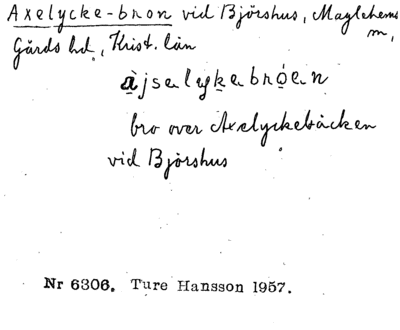 Axelycke-bron vid Björshus, Maglehems
sn,
Gärds hd, Krist. län
ajsalykabroan
bro over Axelyckebäcken
vid Bjørshus
Nr 6306. Ture Hansson 1957.